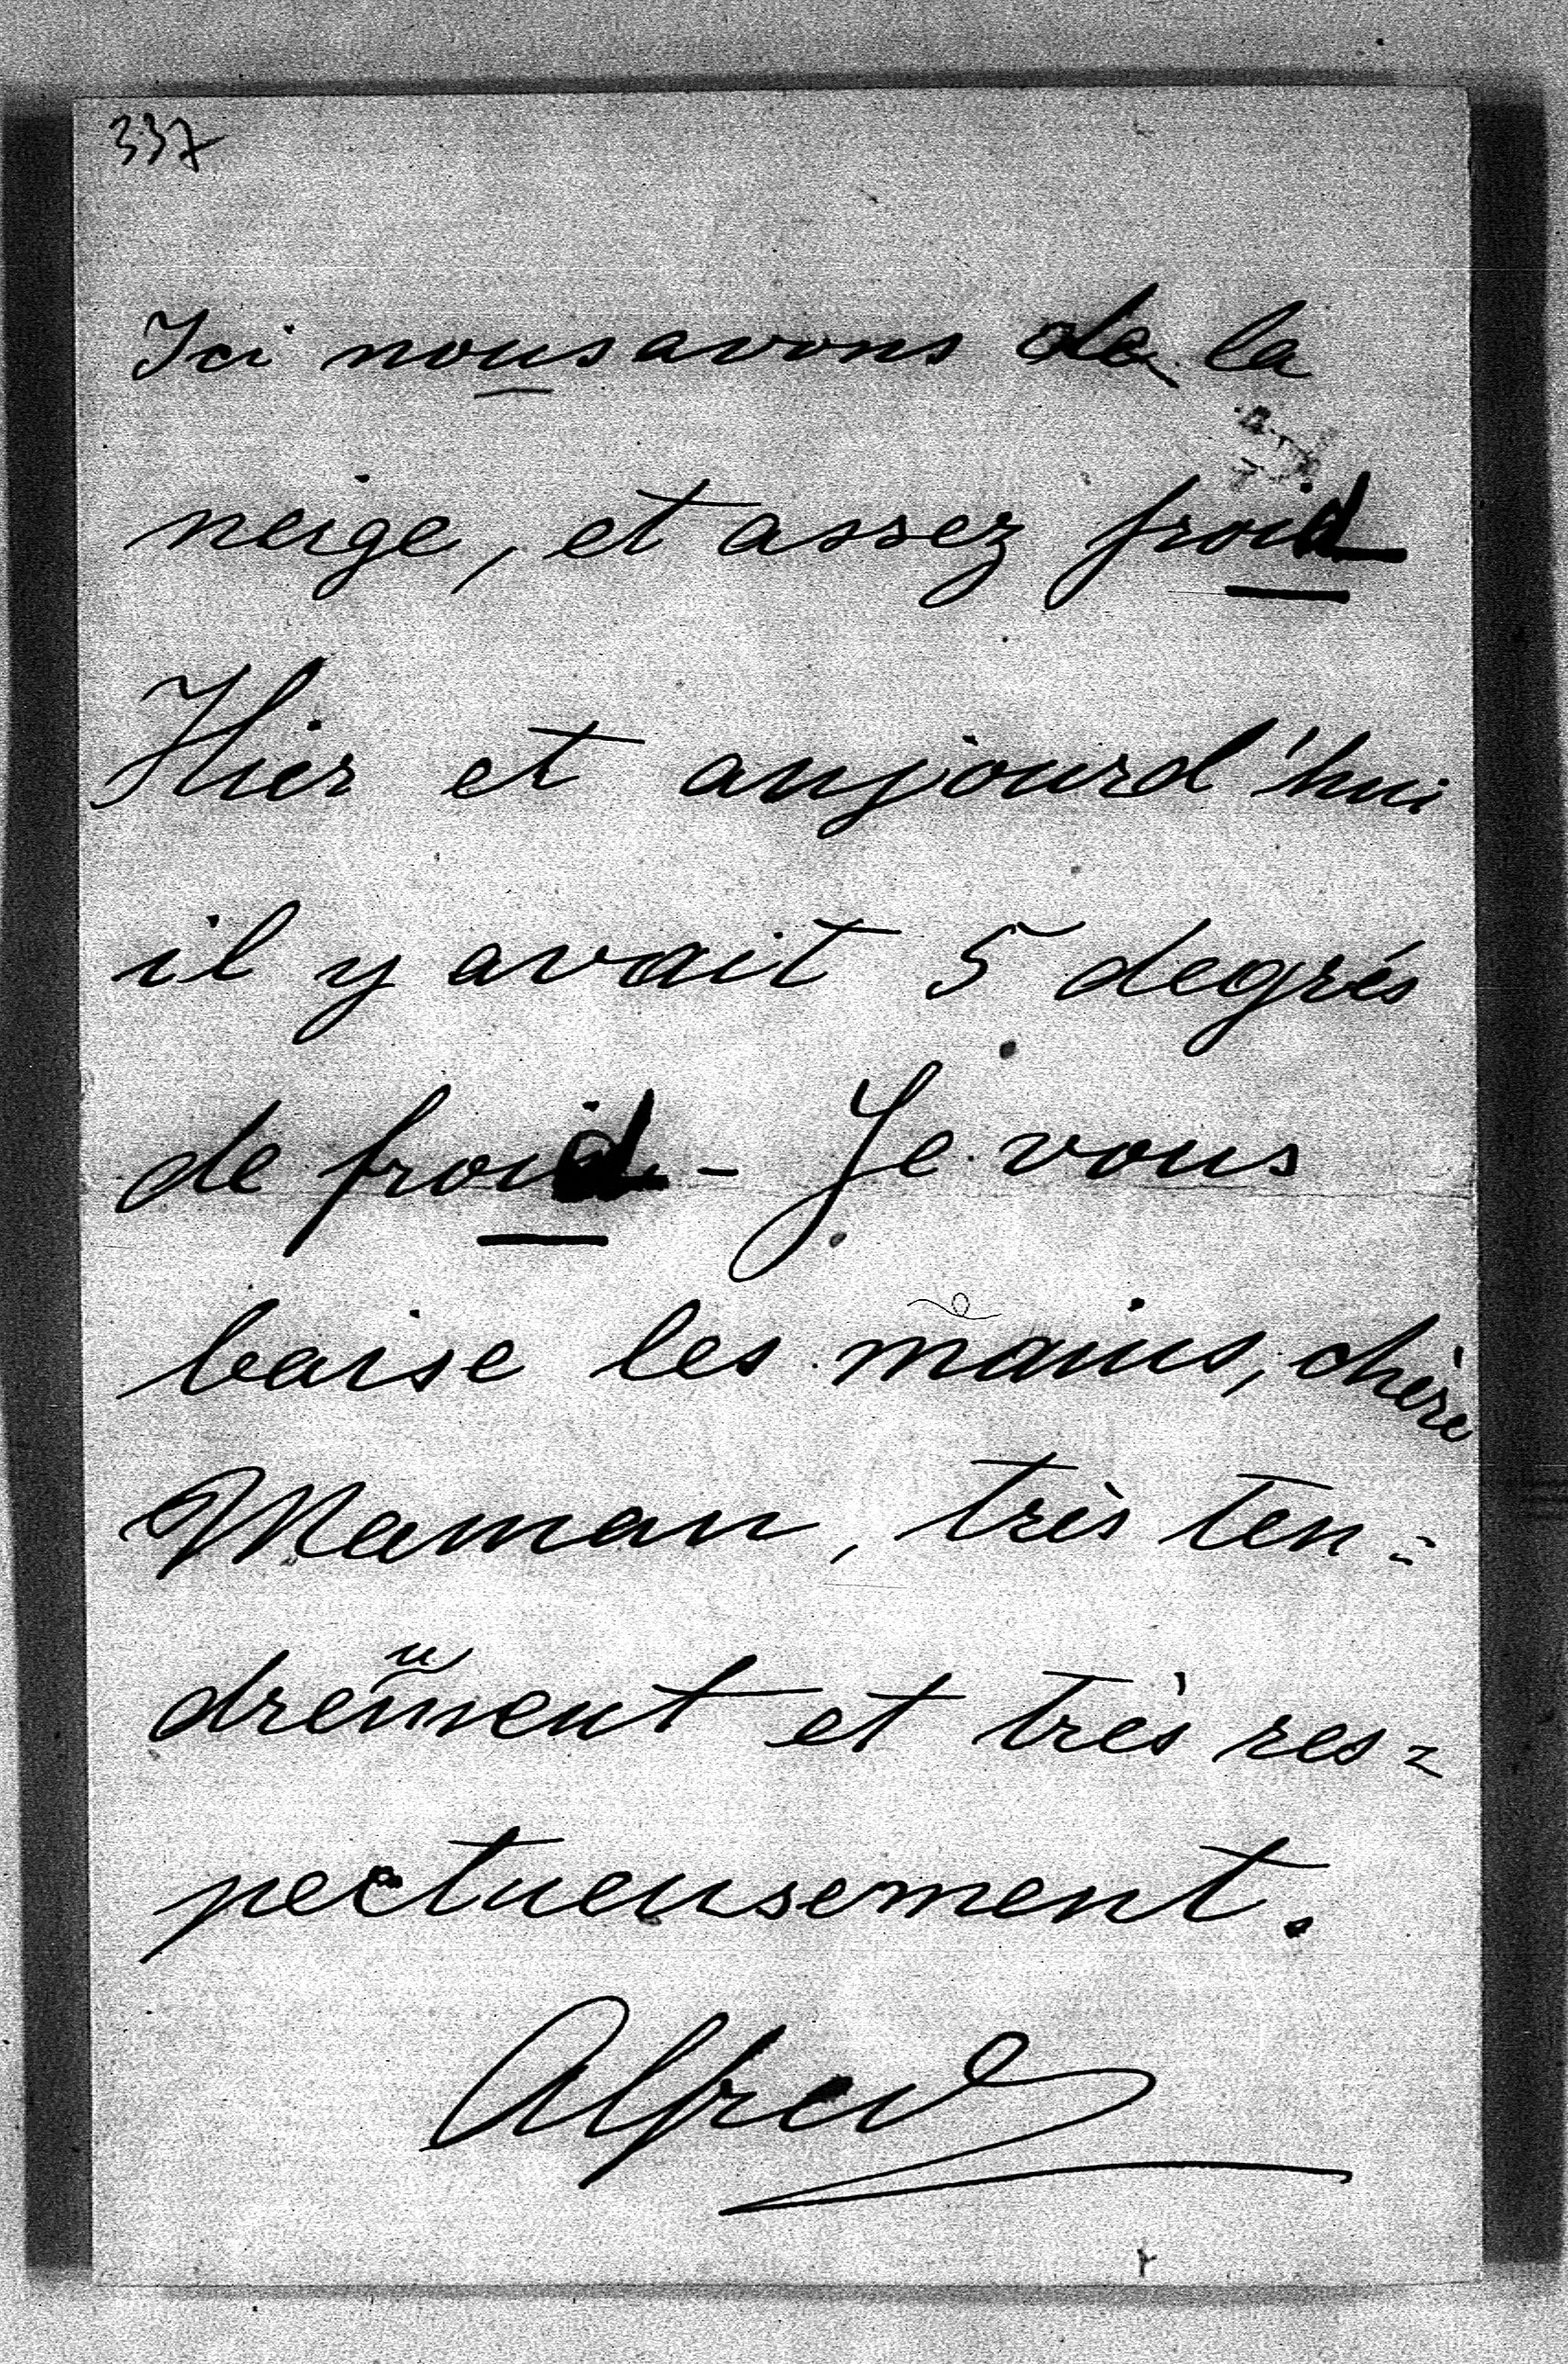 337
Ici nous avons de la
neige, et assez froid
Hier et aujourd'hui
il y avait 5 degrés
de froid - Je vous
baise les mains, chère
Maman, très ten=
drement et très res=
pectueusement.
Alfred